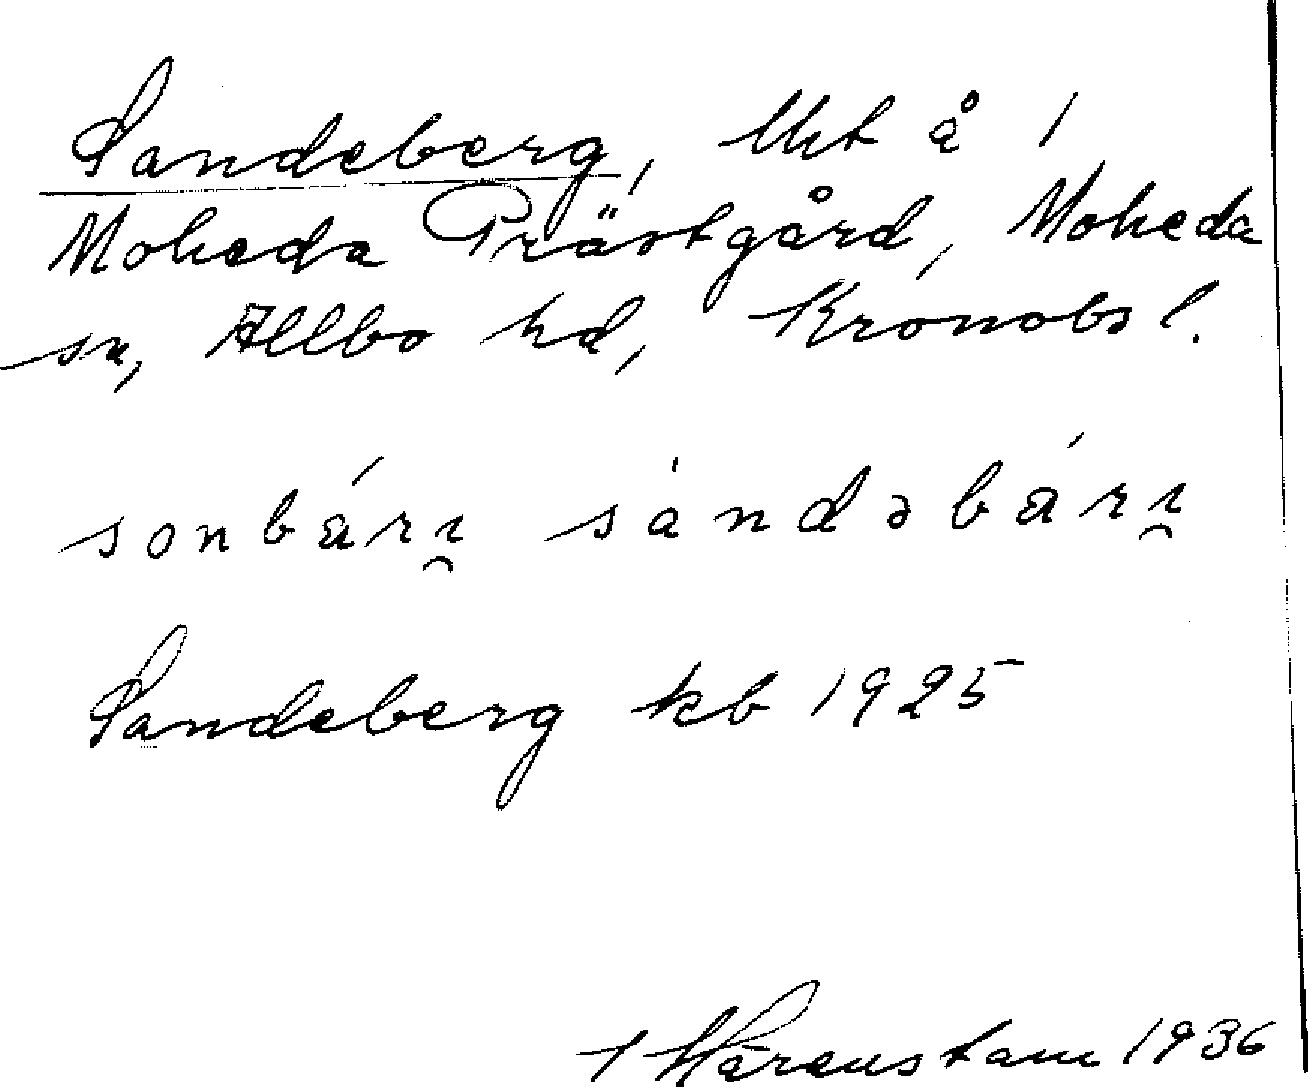 Sandeberg, lht å 1
Moheda Prästgård, Moheda
sn, Allbo hd, Kronobs l.
sonbárı̯ sándəbárı̯
Sandeberg kb 1925
Härenstam 1936